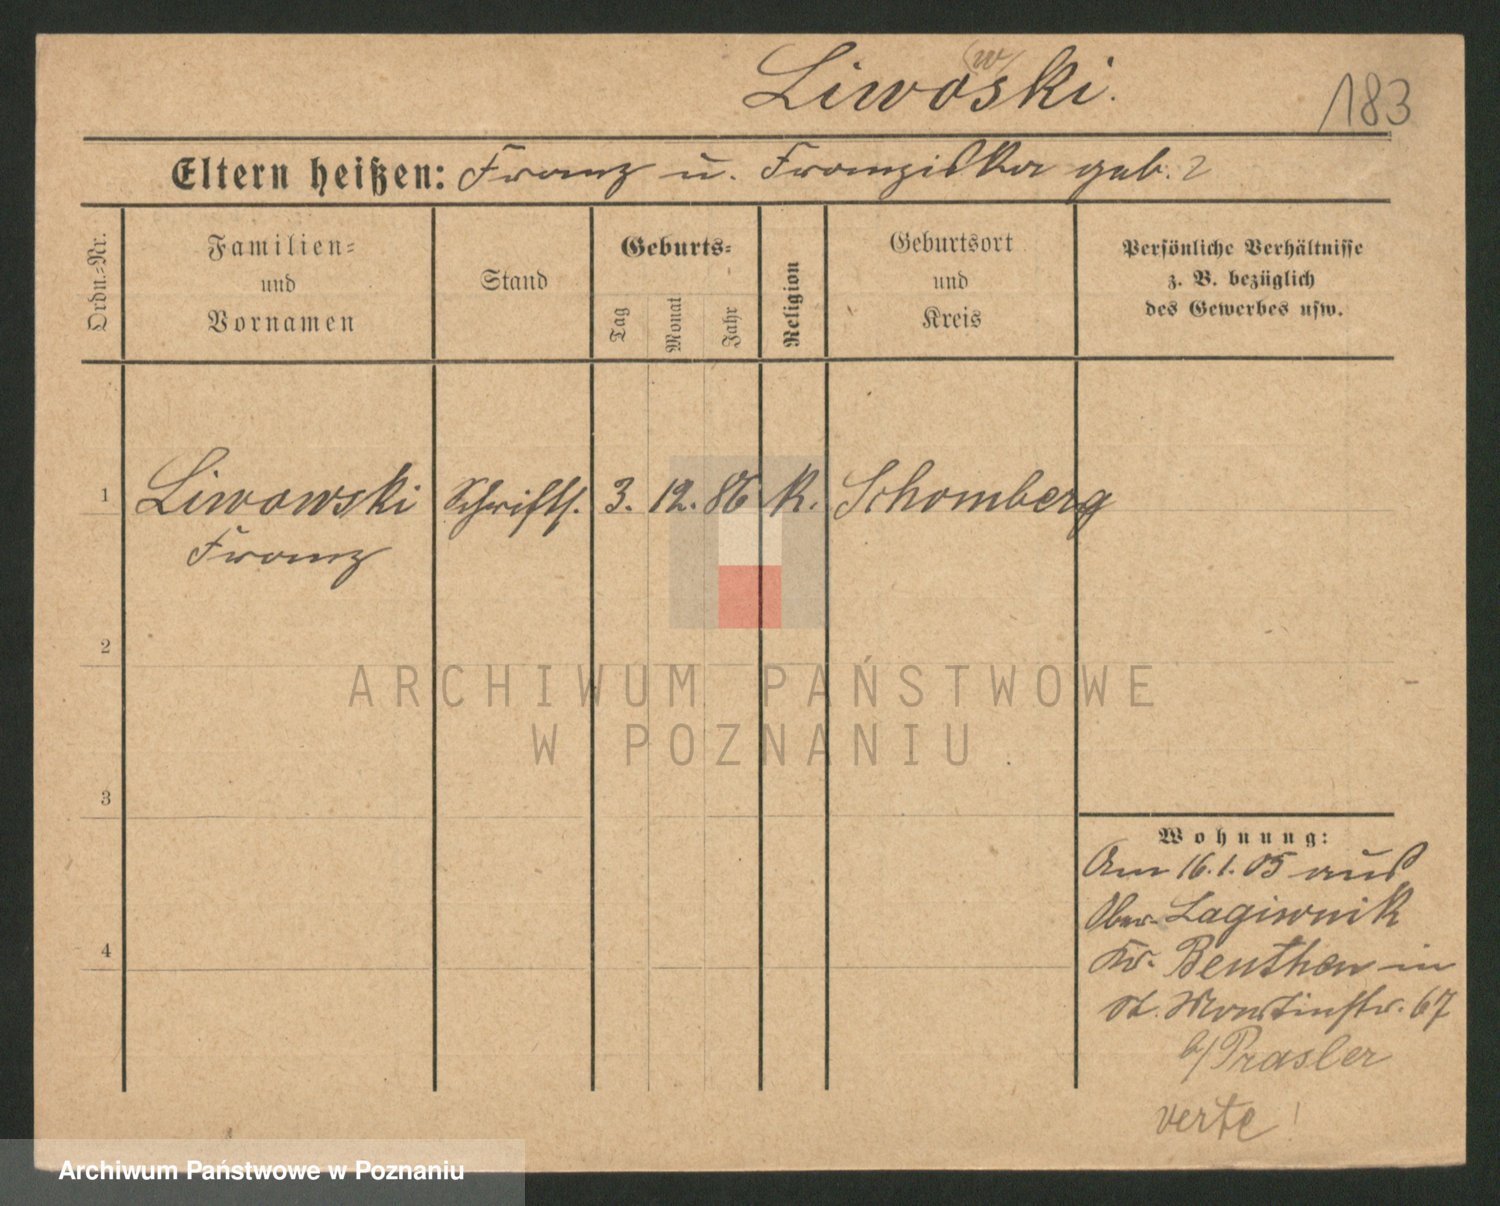 Liwoski.
(w)
183
Eltern heißen: Franz u. Franziska geb. ?
Ordn.-Nr.
Familien-
und
Vornamen
Stand
Geburts-
Tag
Monat
Jahr
Religion
Geburtsort
und
Kreis
Persönliche Verhältnisse
z. B. bezüglich
des Gewerbes usw.
1 Liwowski Schrifts. 3. 12. 86 K. Schomberg
Franz
2
3
4
Wohnung:
Am 16.1.05 aus
Ober-Lagiewnik
Kr. Beuthen in
St. Martinstr. 67
b/ Prasler
verte!
ARCHIWUM PAŃSTWOWE
W POZNANIU
Archiwum Państwowe w Poznaniu